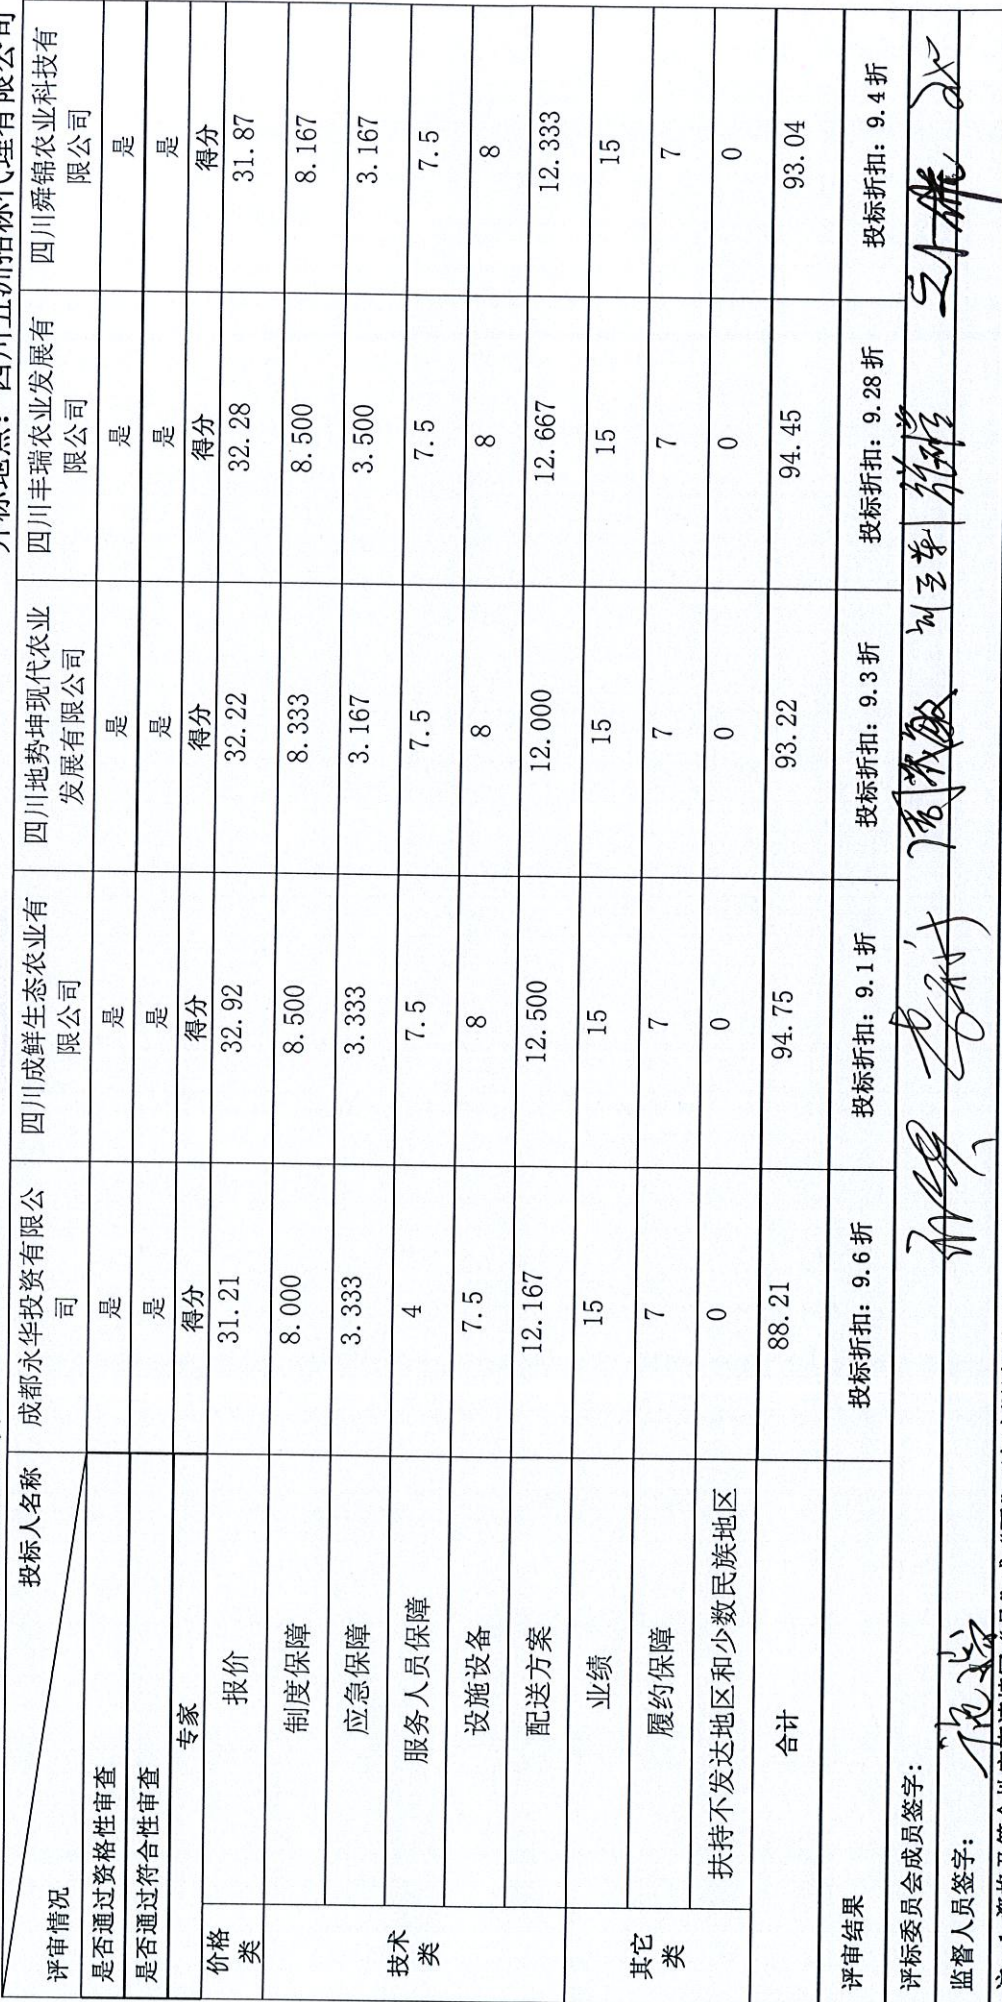 开标地点：四川五洲招标代理有限公司
投标人名称
评审情况
成都永华投资有限公
司
四川成鲜生态农业有
限公司
四川地势坤现代农业
发展有限公司
四川丰瑞农业发展有
限公司
四川舜锦农业科技有
限公司
是否通过资格性审查 是 是 是 是 是
是否通过符合性审查 是 是 是 是 是
专家 得分 得分 得分 得分 得分
价格
类
报价 31.21 32.92 32.22 32.28 31.87
技术
类
制度保障 8.000 8.500 8.333 8.500 8.167
应急保障 3.333 3.333 3.167 3.500 3.167
服务人员保障 4 7.5 7.5 7.5 7.5
设施设备 7.5 8 8 8 8
配送方案 12.167 12.500 12.000 12.667 12.333
其它
类
业绩 15 15 15 15 15
履约保障 7 7 7 7 7
扶持不发达地区和少数民族地区 0 0 0 0 0
合计 88.21 94.75 93.22 94.45 93.04
评审结果 投标折扣：9.6折 投标折扣：9.1折 投标折扣：9.3折 投标折扣：9.28折 投标折扣：9.4折
评标委员会成员签字：
监督人员签字：